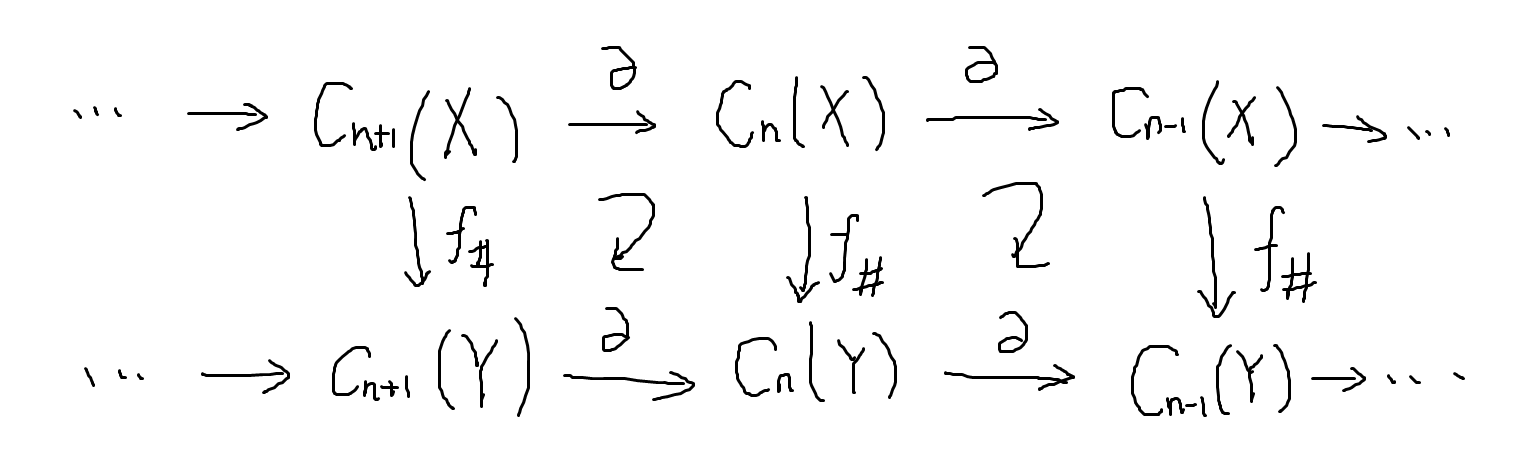 ∂ ∂
... → Cₙ₊₁(X) → Cₙ(X) → Cₙ₋₁(X) → ...
↓ f# ↓ f# ↓ f#
∂ ∂
... → Cₙ₊₁(Y) → Cₙ(Y) → Cₙ₋₁(Y) → ...